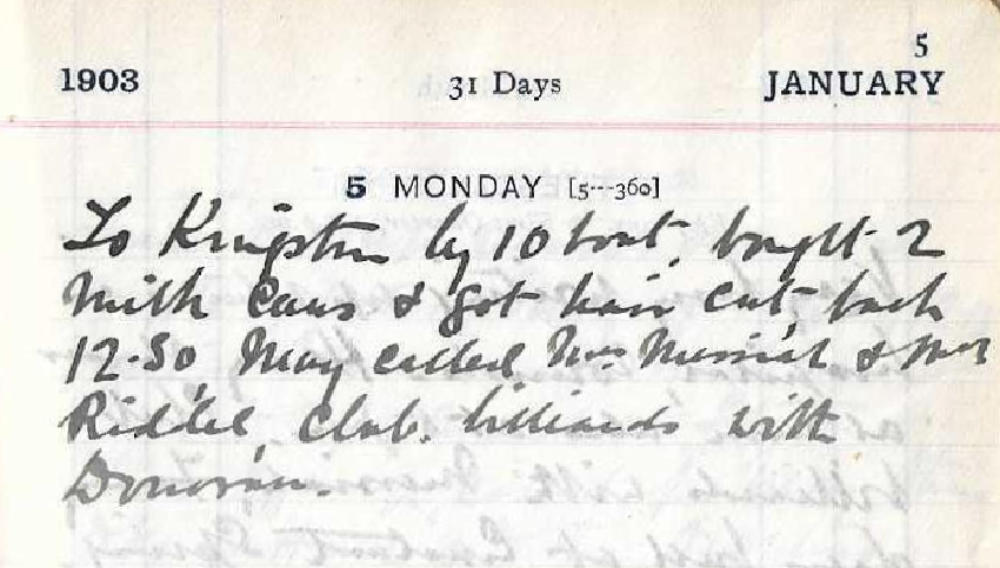 5
1903 31 Days JANUARY
5 MONDAY [5---360]
To Kingston by 10 boat, bought 2
Milk Cans & got hair cut, back
12-30, May called Mrs & Mrs
Riddel, Club. billiards with
Donovan.